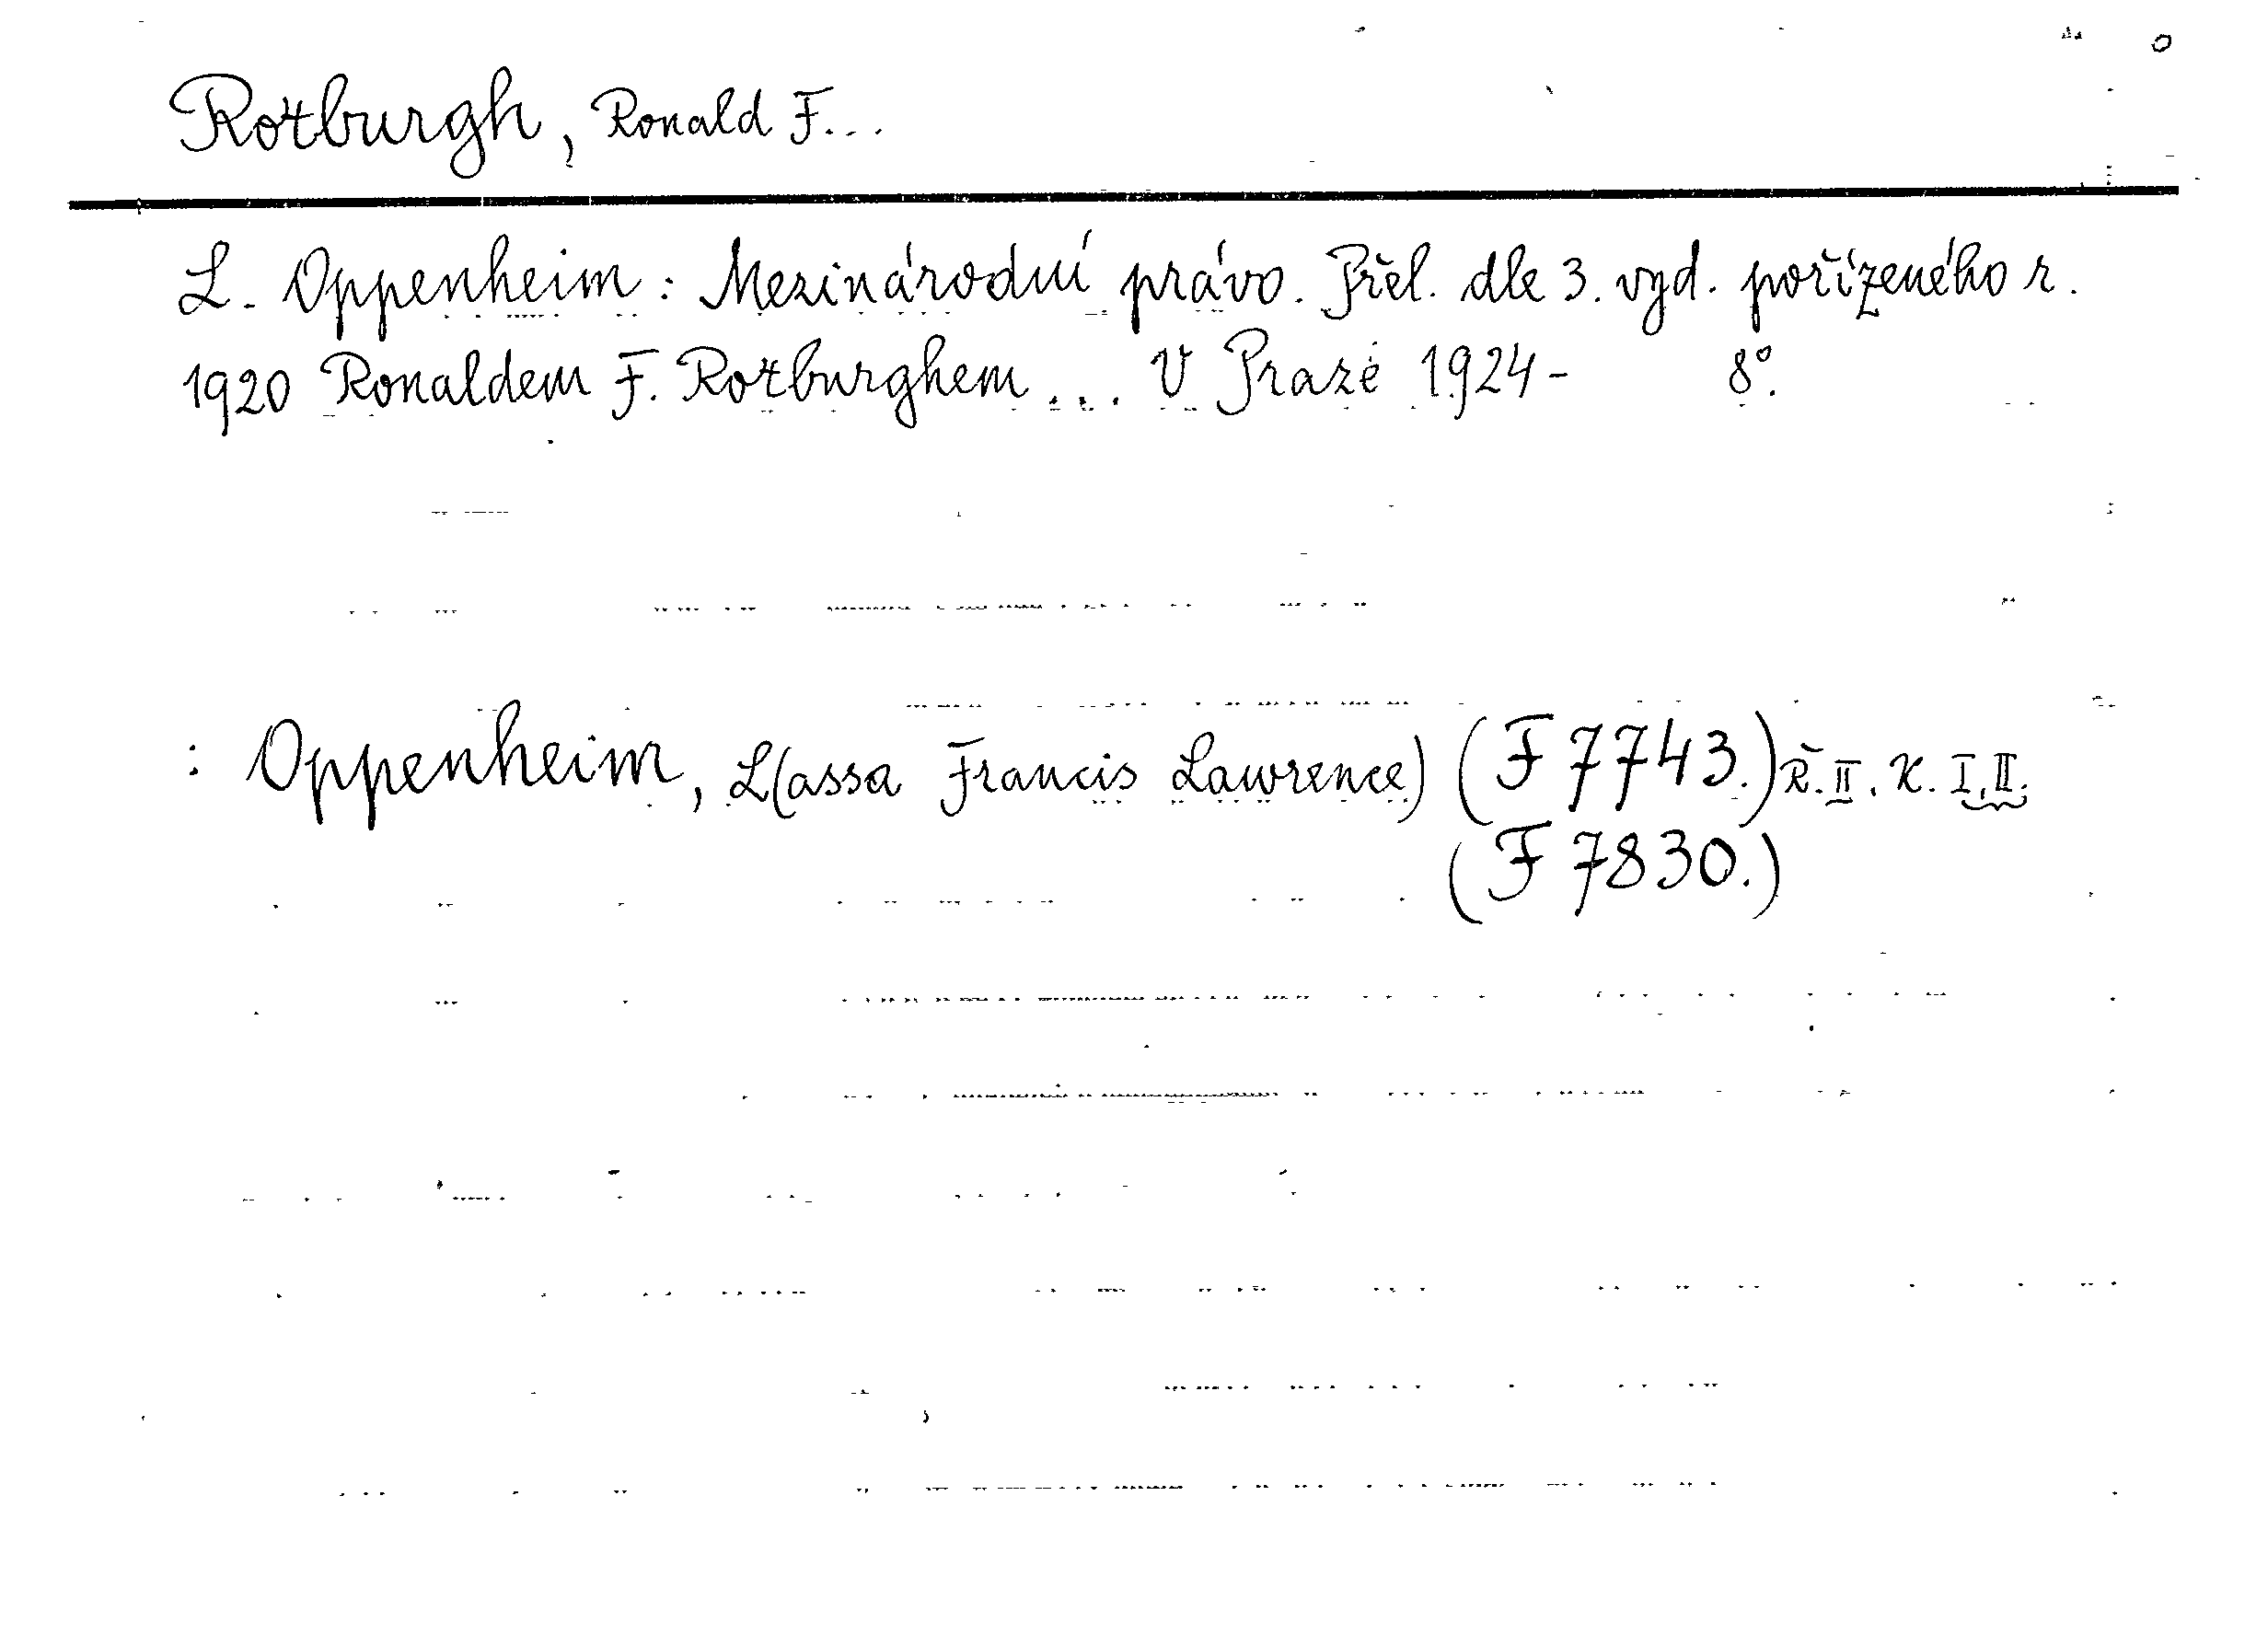 Roxburgh, Ronald F...
L. Oppenheim: Mezinárodní právo. Přel. dle 3. vyd. pořízeného r.
1920 Ronaldem F. Roxburghem ... V Praze 1924- 8°.
: Oppenheim, L(assa Francis Lawrence) (F 7743.) Ř. II. K. I, II.
(F 7830.)